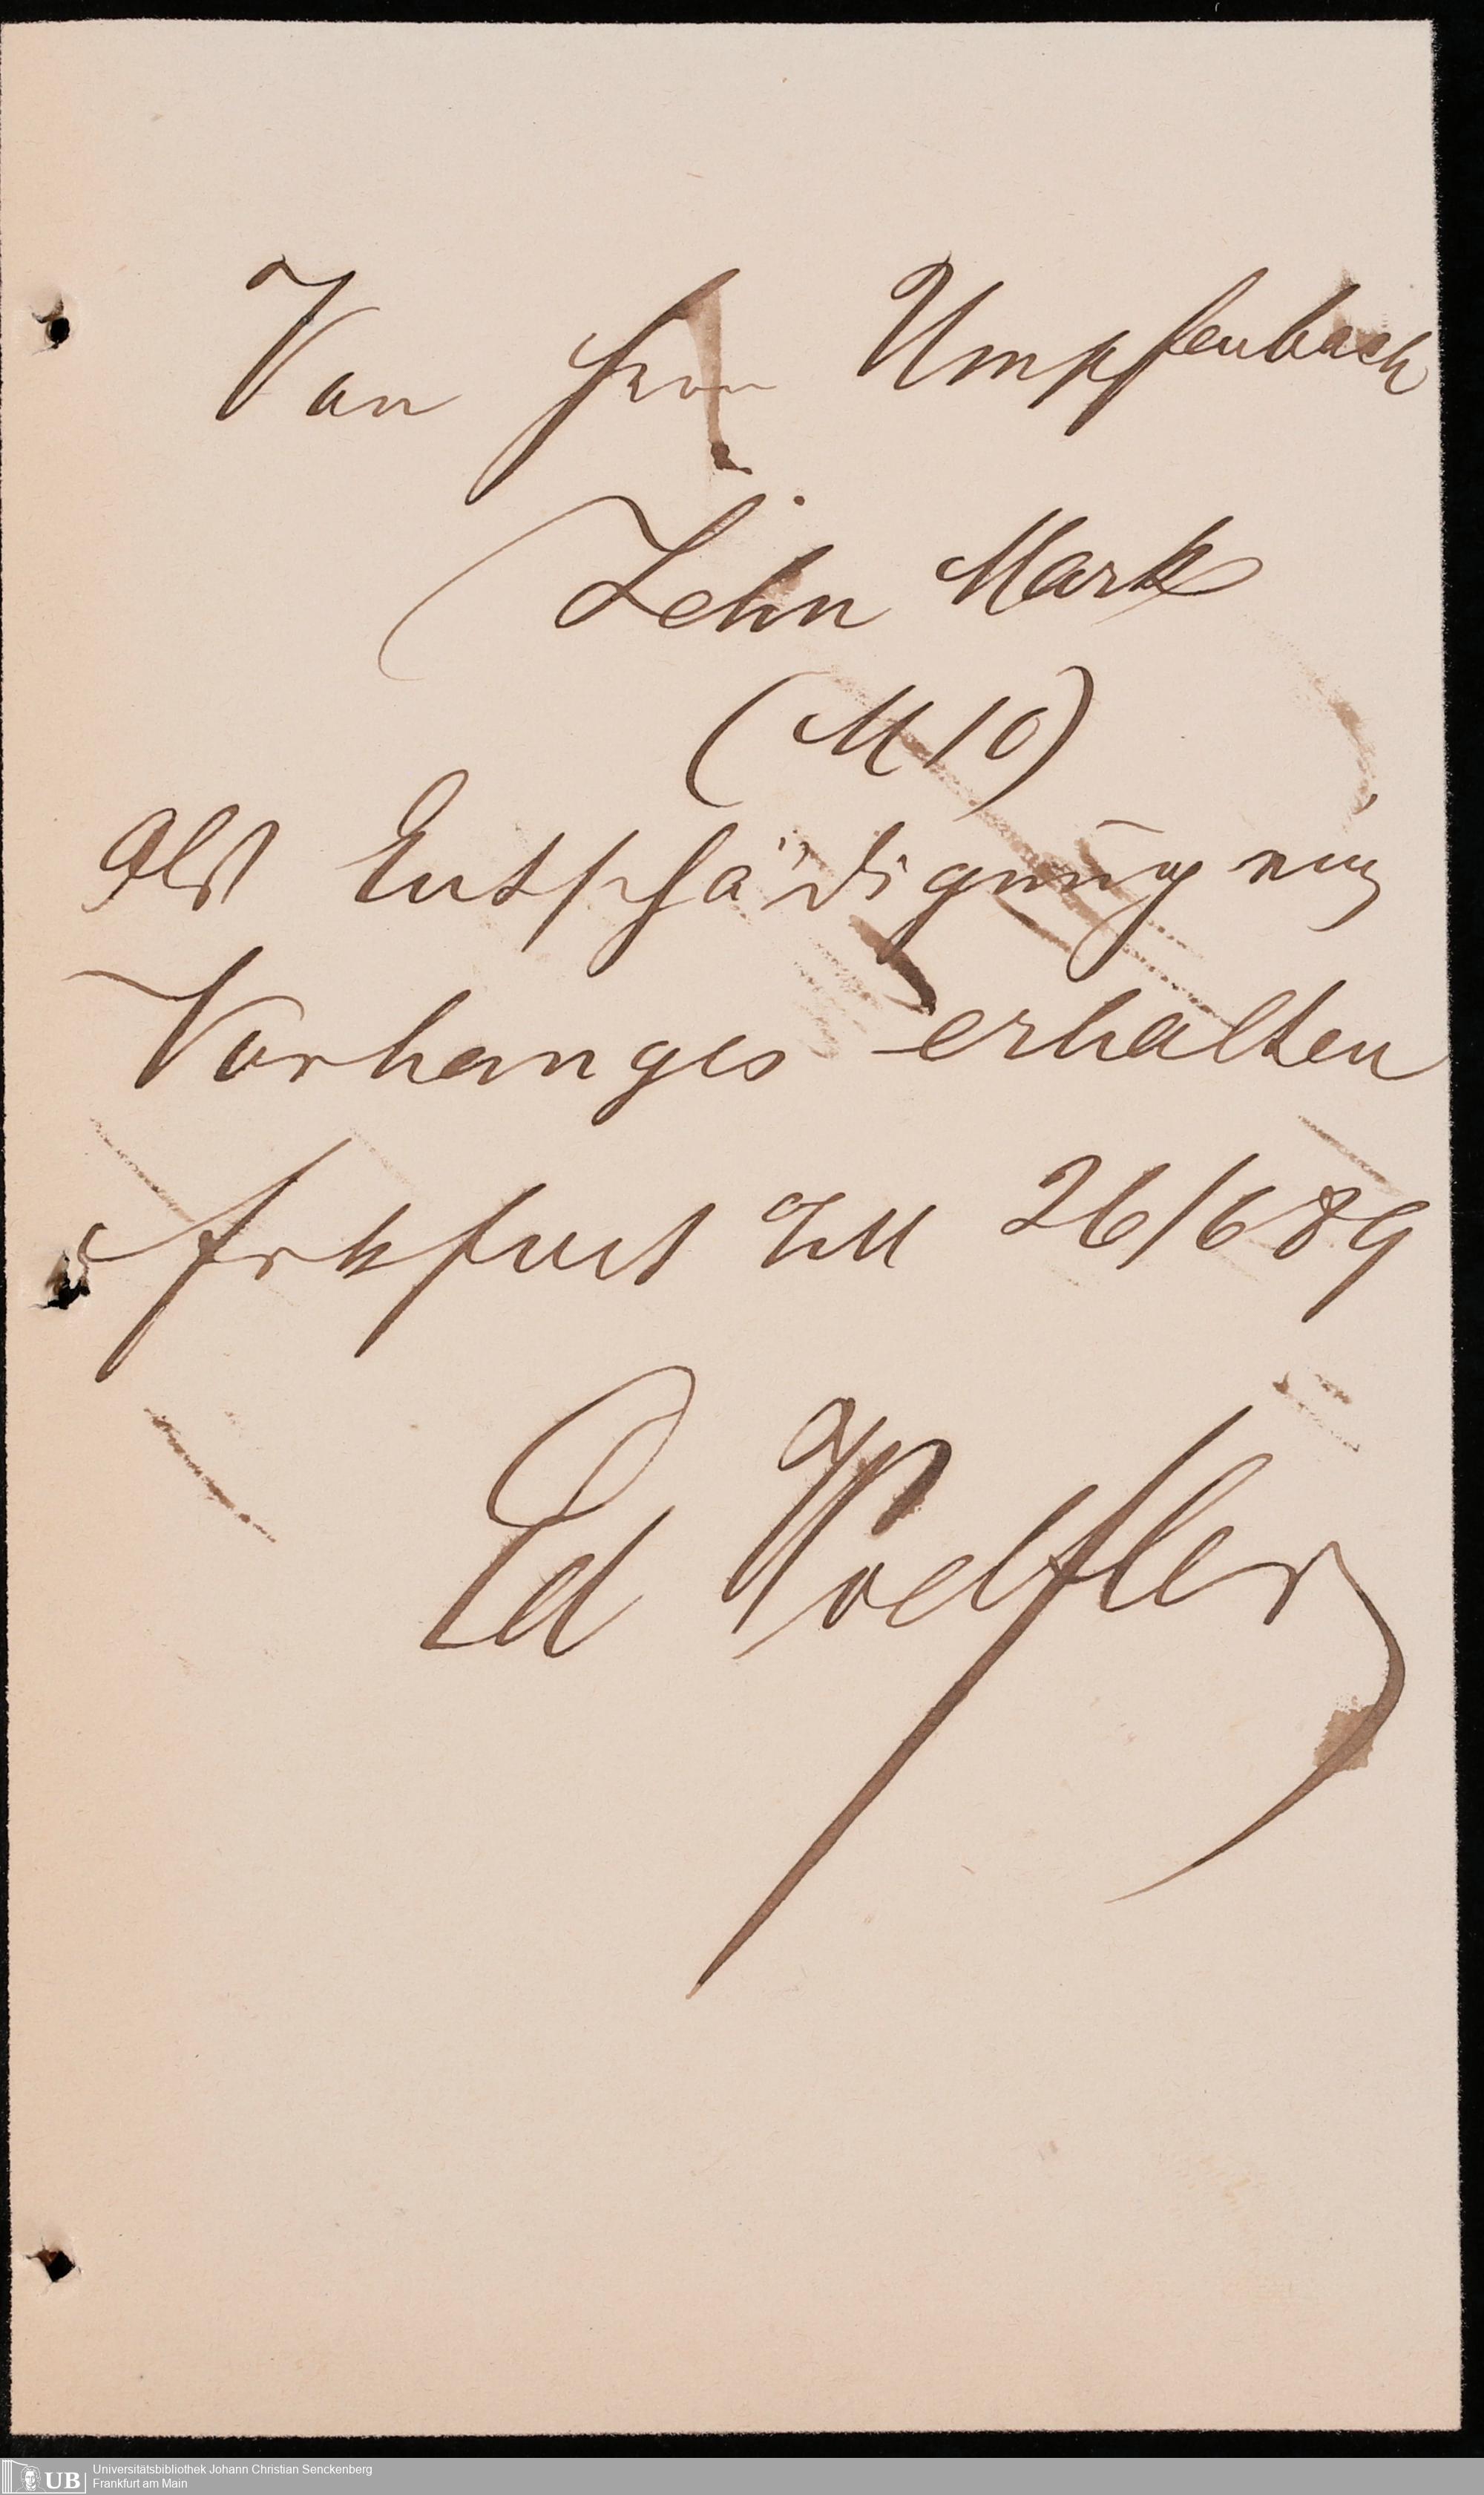 Von Frau Umpfenbach
Zehn Mark
(M 10)
Als Entschädigung eines
Vorhanges erhalten
Frkfurt 26/6 89
Ed Woelfler
UB Universitätsbibliothek Johann Christian Senckenberg
Frankfurt am Main